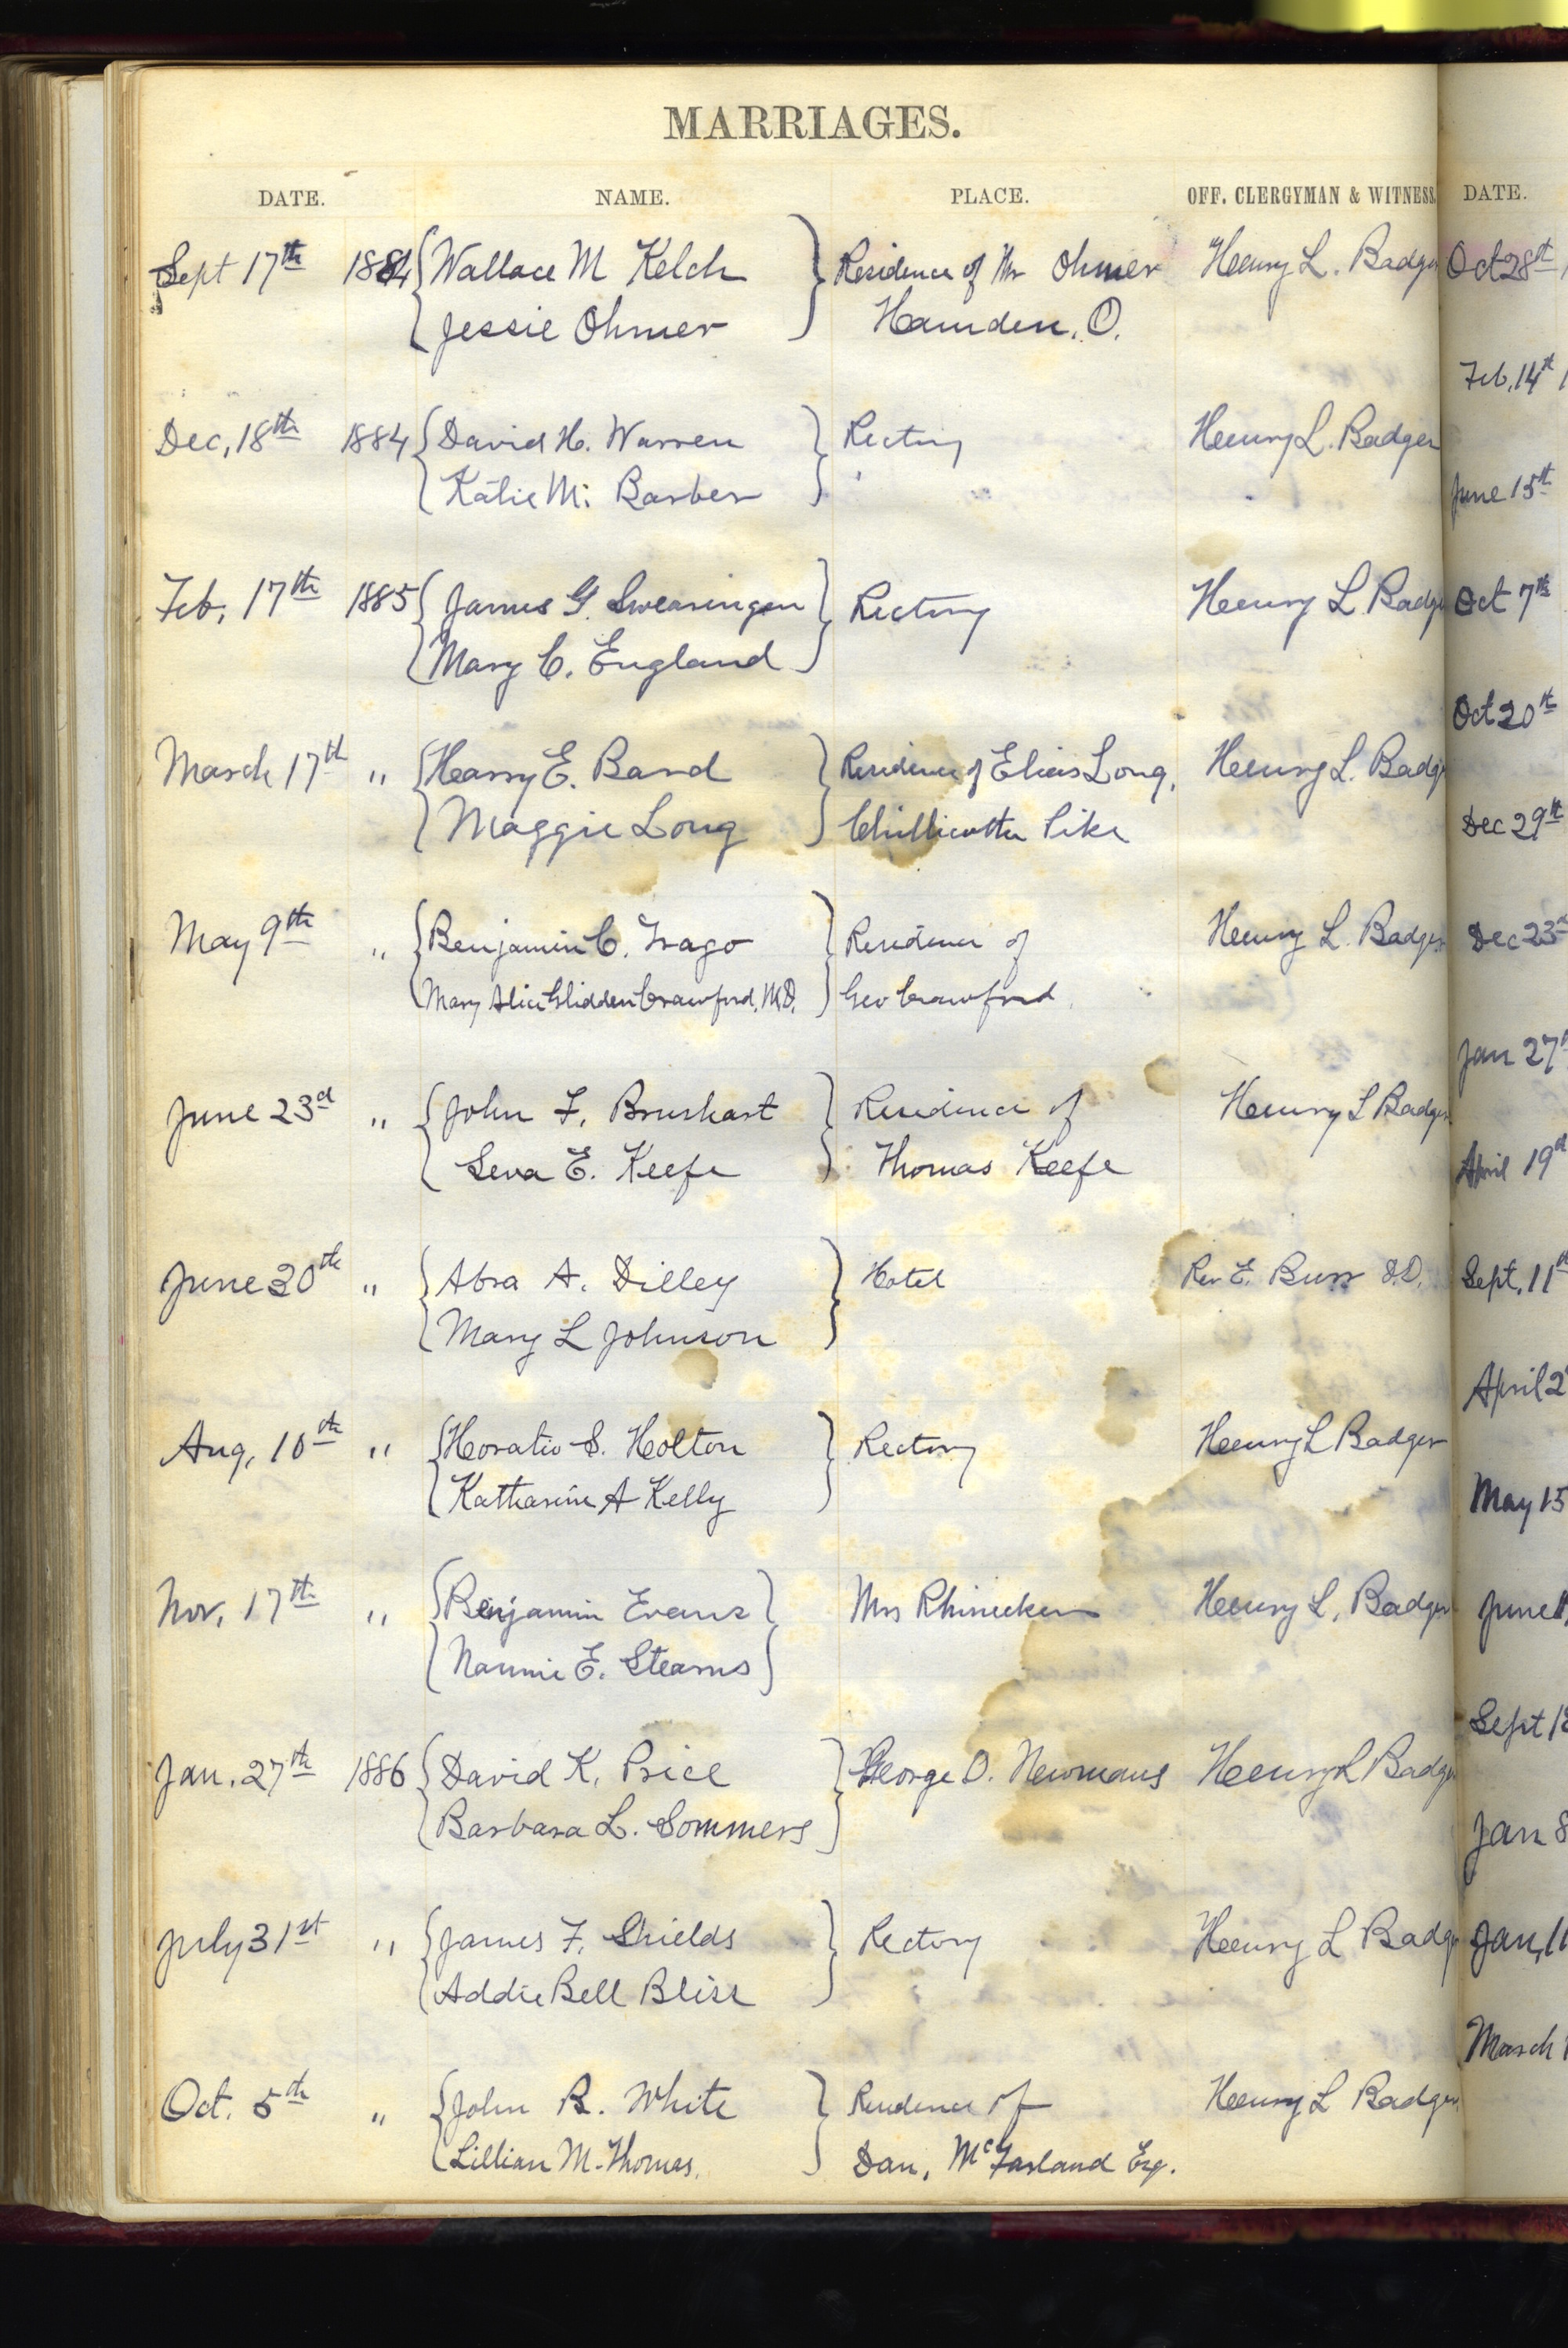 MARRIAGES.
DATE. NAME. PLACE. OFF. CLERGYMAN & WITNESS. DATE.
Sept 17th 1884 Wallace M Kelch Residence of Mr Ohmer Henry L. Badger Oct 28th
Jessie Ohmer Hamden, O.
Feb, 14th
Dec, 18th 1884 David H. Warren Rectory Henry L. Badger
Katie M. Barber
June 15th
Feb, 17th 1885 James G. Swearingen Rectory Henry L Badger Oct 7th
Mary C. England
Oct 20th
March 17th " Harry E. Band Residence of Elias Long, Henry L. Badg
Maggie Long Chillicothe Pike Dec 29th
May 9th " Benjamin C. Trago Residence of Henry L. Badger Dec 23d
Mary Alice Glidden Crawford, M.D. Geo Crawford
Jan 27
June 23d " John F. Brushart Residence of Henry L Badger
Leva E. Keefe Thomas Keefe April 19
June 30th " Abra A. Dilley Hotel Rev E. Burr D.D. Sept, 11th
Mary L Johnson
April 2
Aug, 10th " Horatio S. Holton Rectory Henry L Badger
Katharine A Kelly May 15
Nov, 17th " Benjamin Evans Mrs Rhinecker Henry L, Badger June
Nannie E. Stearns
Sept
Jan. 27th 1886 David K. Price George D. Newmans Henry L Badge
Barbara L. Sommers Jan 8
July 31st " James F. Shields Rectory Henry L Badg Jan, 11
Addie Bell Bliss
March
Oct. 5th " John R. White Residence of Henry L Badger
Lillian M. Thomas. Dan, McFarland Esq.